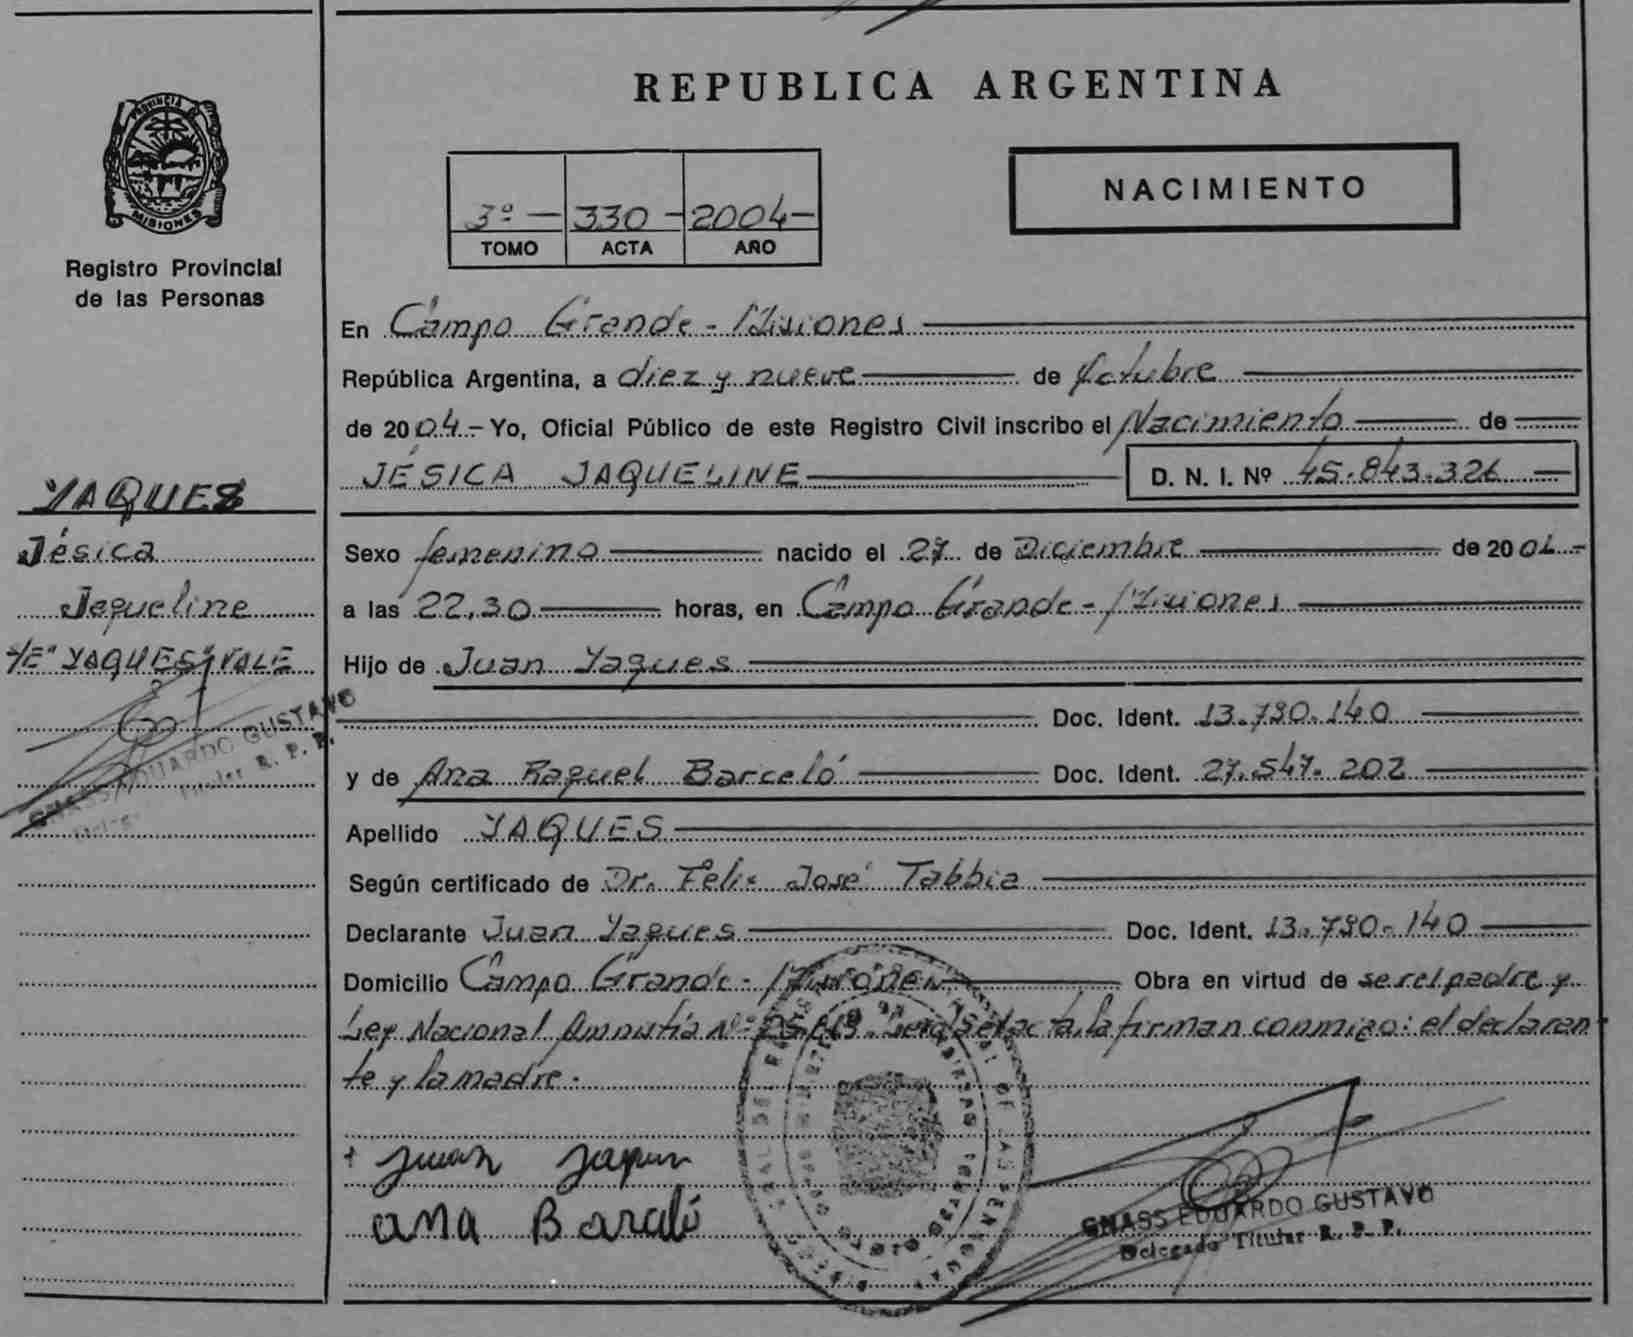 REPUBLICA ARGENTINA
PROVINCIA DE
MISIONES
Registro Provincial
de las Personas
NACIMIENTO
3º — 330 - 2004 -
TOMO ACTA AÑO
En Campo Grande - Misiones
República Argentina, a diez y nueve de Octubre
de 2004.- Yo, Oficial Público de este Registro Civil inscribo el Nacimiento de
JÉSICA JAQUELINE D. N. I. Nº 45.843.326
YAQUES
Jésica
Jaqueline
/E" YAQUES" VALE
GNASS EDUARDO GUSTAVO
Titular R. P. P.
Sexo femenino nacido el 27 de Diciembre de 200
a las 22,30 horas, en Campo Grande - Misiones
Hijo de Juan Yaques
Doc. Ident. 13.790.140
y de Ana Raquel Barceló Doc. Ident. 27.547.202
Apellido YAQUES
Según certificado de Dr. Felix José Tabbia
Declarante Juan Yaques Doc. Ident. 13.790.140
Domicilio Campo Grande - Misiones Obra en virtud de ser el padre y
Ley Nacional Amnistía Nº acta, la firman conmigo: el declaran-
te y la madre.
+ Juan Yaques
ana Barceló
GNASS EDUARDO GUSTAVO
Delegado Titular R. P. P.